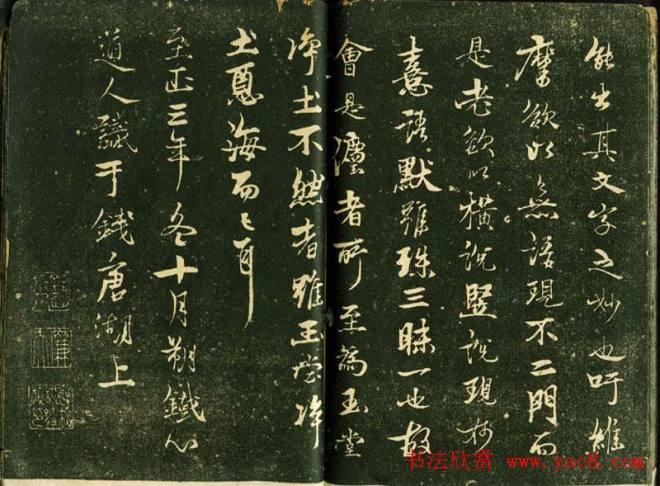 能出其文字之妙也吁維
摩欲以無語現不二門而
是老欲以橫說豎說現於
意語默雖殊三昧一也故
會是者所至為玉堂
淨土不然者雖玉堂淨
土惡海而已耳
至正三年冬十月朔鐵心
道人識于錢唐湖上
书法欣赏 www.yac8.com